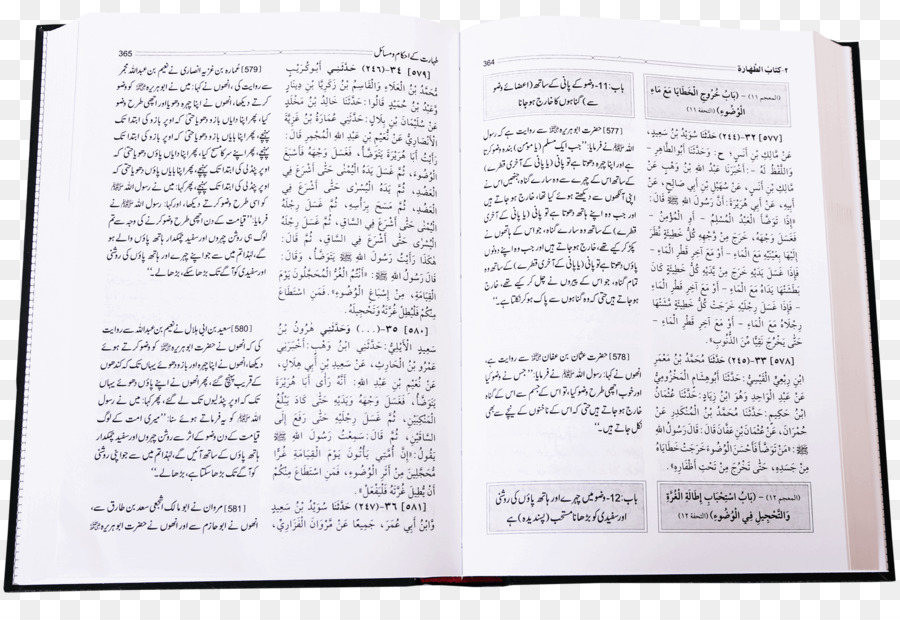 364
٢- كتاب الطهارة
(المعجم ١١) - (بَابُ خُرُوجِ الْخَطَايَا مَعَ مَاءِ
الْوُضُوءِ) (التحفة ١١)
[٥٧٧] ٣٢-(٢٤٤) حَدَّثَنَا سُوَيْدُ بْنُ سَعِيدٍ،
عَنْ مَالِكِ بْنِ أَنَسٍ؛ ح: وَحَدَّثَنَا أَبُوالطَّاهِرِ -
وَاللَّفْظُ لَهُ -: أَخْبَرَنَا عَبْدُ اللهِ بْنُ وَهْبٍ عَنْ
مَالِكِ بْنِ أَنَسٍ، عَنْ سُهَيْلِ بْنِ أَبِي صَالِحٍ، عَنْ
أَبِيهِ، عَنْ أَبِي هُرَيْرَةَ: أَنَّ رَسُولَ اللهِ ﷺ قَالَ:
«إِذَا تَوَضَّأَ الْعَبْدُ الْمُسْلِمُ - أَوِ الْمُؤْمِنُ -
فَغَسَلَ وَجْهَهُ، خَرَجَ مِنْ وَجْهِهِ كُلُّ خَطِيئَةٍ نَظَرَ
إِلَيْهَا بِعَيْنَيْهِ مَعَ الْمَاءِ - أَوْ مَعَ آخِرِ قَطْرِ الْمَاءِ -
فَإِذَا غَسَلَ يَدَيْهِ خَرَجَ مِنْ يَدَيْهِ كُلُّ خَطِيئَةٍ كَانَ
بَطَشَتْهَا يَدَاهُ مَعَ الْمَاءِ - أَوْ مَعَ آخِرِ قَطْرِ الْمَاءِ
- فَإِذَا غَسَلَ رِجْلَيْهِ خَرَجَتْ كُلُّ خَطِيئَةٍ مَشَتْهَا
رِجْلَاهُ مَعَ الْمَاءِ - أَوْ مَعَ آخِرِ قَطْرِ الْمَاءِ -
حَتَّى يَخْرُجَ نَقِيًّا مِّنَ الذُّنُوبِ».
[٥٧٨] ٣٣-(٢٤٥) حَدَّثَنَا مُحَمَّدُ بْنُ مَعْمَرِ
ابْنِ رِبْعِيٍّ الْقَيْسِيُّ: حَدَّثَنَا أَبُوهِشَامٍ الْمَخْزُومِيُّ
عَنْ عَبْدِ الْوَاحِدِ وَهُوَ ابْنُ زِيَادٍ: حَدَّثَنَا عُثْمَانُ
ابْنُ حَكِيمٍ: حَدَّثَنَا مُحَمَّدُ بْنُ الْمُنْكَدِرِ عَنْ
حُمْرَانَ، عَنْ عُثْمَانَ بْنِ عَفَّانَ قَالَ: قَالَ رَسُولُ اللهِ
ﷺ: «مَنْ تَوَضَّأَ فَأَحْسَنَ الْوُضُوءَ خَرَجَتْ خَطَايَاهُ
مِنْ جَسَدِهِ، حَتَّى تَخْرُجَ مِنْ تَحْتِ أَظْفَارِهِ».
(المعجم ١٢) - (بَابُ اسْتِحْبَابِ إِطَالَةِ الْغُرَّةِ
وَالتَّحْجِيلِ فِي الْوُضُوءِ) (التحفة ١٢)
باب:11- وضو کے پانی کے ساتھ (اعضائے وضو
سے) گناہوں کا خارج ہو جانا
[577] حضرت ابو ہریرہ ؓ سے روایت ہے کہ رسول
اللہ ﷺ نے فرمایا: "جب ایک مسلم (یا مومن) بندہ وضو کرتا
ہے اور اپنا چہرہ دھوتا ہے تو پانی (یا پانی کے آخری قطرے)
کے ساتھ اس کے چہرے سے وہ سارے گناہ، جنھیں اس نے
اپنی آنکھوں سے دیکھتے ہوئے کیا تھا، خارج ہو جاتے ہیں
اور جب وہ اپنے ہاتھ دھوتا ہے تو پانی (یا پانی کے آخری
قطرے) کے ساتھ وہ سارے گناہ، جو اس کے ہاتھوں نے
پکڑ کر کیے تھے، خارج ہو جاتے ہیں اور جب وہ اپنے دونوں
پاؤں دھوتا ہے تو پانی (یا پانی کے آخری قطرے) کے ساتھ وہ
تمام گناہ، جو اس کے پیروں نے چل کر کیے تھے، خارج
ہو جاتے ہیں حتی کہ وہ گناہوں سے پاک ہو کر نکلتا ہے۔"
[578] حضرت عثمان بن عفان ؓ سے روایت ہے،
انھوں نے کہا: رسول اللہ ﷺ نے فرمایا: "جس نے وضو کیا
اور خوب اچھی طرح وضو کیا، تو اس کے جسم سے اس کے گناہ
خارج ہو جاتے ہیں حتی کہ اس کے ناخنوں کے نیچے سے بھی
نکل جاتے ہیں۔"
باب:12- وضو میں چہرے اور ہاتھ پاؤں کی روشنی
اور سفیدی کو بڑھانا مستحب (پسندیدہ) ہے
طہارت کے احکام و مسائل
365
[٥٧٩] ٣٤-(٢٤٦) حَدَّثَنِي أَبُوكُرَيْبٍ
مُحَمَّدُ بْنُ الْعَلَاءِ وَالْقَاسِمُ بْنُ زَكَرِيَّا بْنِ دِينَارٍ
وَعَبْدُ بْنُ حُمَيْدٍ قَالُوا: حَدَّثَنَا خَالِدُ بْنُ مَخْلَدٍ
عَنْ سُلَيْمَانَ بْنِ بِلَالٍ: حَدَّثَنِي عُمَارَةُ بْنُ غَزِيَّةَ
الْأَنْصَارِيُّ عَنْ نُعَيْمِ بْنِ عَبْدِ اللهِ الْمُجْمِرِ قَالَ:
رَأَيْتُ أَبَا هُرَيْرَةَ يَتَوَضَّأُ، فَغَسَلَ وَجْهَهُ فَأَسْبَغَ
الْوُضُوءَ، ثُمَّ غَسَلَ يَدَهُ الْيُمْنَى حَتَّى أَشْرَعَ فِي
الْعَضُدِ، ثُمَّ يَدَهُ الْيُسْرَى حَتَّى أَشْرَعَ فِي
الْعَضُدِ، ثُمَّ مَسَحَ بِرَأْسِهِ، ثُمَّ غَسَلَ رِجْلَهُ
الْيُمْنَى حَتَّى أَشْرَعَ فِي السَّاقِ، ثُمَّ غَسَلَ رِجْلَهُ
الْيُسْرَى حَتَّى أَشْرَعَ فِي السَّاقِ، ثُمَّ قَالَ:
هَكَذَا رَأَيْتُ رَسُولَ اللهِ ﷺ يَتَوَضَّأُ، وَقَالَ:
قَالَ رَسُولُ اللهِ ﷺ: «أَنْتُمُ الْغُرُّ الْمُحَجَّلُونَ يَوْمَ
الْقِيَامَةِ، مِنْ إِسْبَاغِ الْوُضُوءِ، فَمَنِ اسْتَطَاعَ
مِنْكُمْ فَلْيُطِلْ غُرَّتَهُ وَتَحْجِيلَهُ».
[٥٨٠] ٣٥-(...) وَحَدَّثَنِي هَرُونُ بْنُ
سَعِيدٍ الْأَيْلِيُّ: حَدَّثَنِي ابْنُ وَهْبٍ: أَخْبَرَنِي
عَمْرُو بْنُ الْحَارِثِ، عَنْ سَعِيدِ بْنِ أَبِي هِلَالٍ،
عَنْ نُعَيْمِ بْنِ عَبْدِ اللهِ: أَنَّهُ رَأَى أَبَا هُرَيْرَةَ
يَتَوَضَّأُ، فَغَسَلَ وَجْهَهُ وَيَدَيْهِ حَتَّى كَادَ يَبْلُغُ
الْمَنْكِبَيْنِ، ثُمَّ غَسَلَ رِجْلَيْهِ حَتَّى رَفَعَ إِلَى
السَّاقَيْنِ، ثُمَّ قَالَ: سَمِعْتُ رَسُولَ اللهِ ﷺ
يَقُولُ: «إِنَّ أُمَّتِي يَأْتُونَ يَوْمَ الْقِيَامَةِ غُرًّا
مُحَجَّلِينَ مِنْ أَثَرِ الْوُضُوءِ، فَمَنِ اسْتَطَاعَ مِنْكُمْ
أَنْ يُطِيلَ غُرَّتَهُ فَلْيَفْعَلْ».
[٥٨١] ٣٦-(٢٤٧) حَدَّثَنَا سُوَيْدُ بْنُ سَعِيدٍ
وَابْنُ أَبِي عُمَرَ، جَمِيعًا عَنْ مَرْوَانَ الْفَزَارِيِّ،
[579] عمارہ بن غزیہ انصاری نے نعیم بن عبداللہ مجمر
سے روایت کی، انھوں نے کہا: میں نے ابو ہریرہ ؓ کو وضو
کرتے دیکھا، انھوں نے اپنا چہرہ دھویا اور اچھی طرح وضو
کیا، پھر اپنا دایاں ہاتھ دھویا حتی کہ اوپر بازو کی ابتدا تک
پہنچے، پھر اپنا بایاں ہاتھ دھویا حتی کہ اوپر بازو کی ابتدا تک
پہنچے، پھر اپنے سر کا مسح کیا، پھر اپنا دایاں پاؤں دھویا حتی کہ
اوپر پنڈلی کی ابتدا تک پہنچے، پھر اپنا بایاں پاؤں دھویا حتی کہ
اوپر پنڈلی کی ابتدا تک پہنچے، پھر کہا: میں نے رسول اللہ ﷺ
کو اسی طرح وضو کرتے دیکھا، اور کہا: رسول اللہ ﷺ نے
فرمایا: "قیامت کے دن اچھی طرح وضو کرنے کی وجہ سے تم
لوگ ہی روشن چہروں اور سفید چمکدار ہاتھ پاؤں والے ہو
گے، لہٰذا تم میں سے جو اپنے چہرے اور ہاتھ پاؤں کی روشنی
اور سفیدی کو آگے تک بڑھا سکے، بڑھا لے۔"
[580] سعید بن ابی ہلال نے نعیم بن عبداللہ سے روایت
کی کہ انھوں نے حضرت ابو ہریرہ ؓ کو وضو کرتے ہوئے
دیکھا، انھوں نے اپنا چہرہ اور بازو دھوئے یہاں تک کہ کندھوں
کے قریب پہنچ گئے، پھر انھوں نے اپنے پاؤں دھوئے یہاں
تک کہ اوپر پنڈلیوں تک لے گئے، پھر کہا: میں نے رسول
اللہ ﷺ کو یہ فرماتے ہوئے سنا: "میری امت کے لوگ
قیامت کے دن وضو کے اثر سے روشن چہروں اور سفید چمکدار
ہاتھ پاؤں کے ساتھ آئیں گے، لہٰذا تم میں سے جو اپنی روشنی
کو آگے تک بڑھا سکتا ہے، بڑھا لے۔"
[581] مروان نے ابو مالک اشجعی سعد بن طارق سے،
انھوں نے ابو حازم سے اور انھوں نے حضرت ابو ہریرہ ؓ